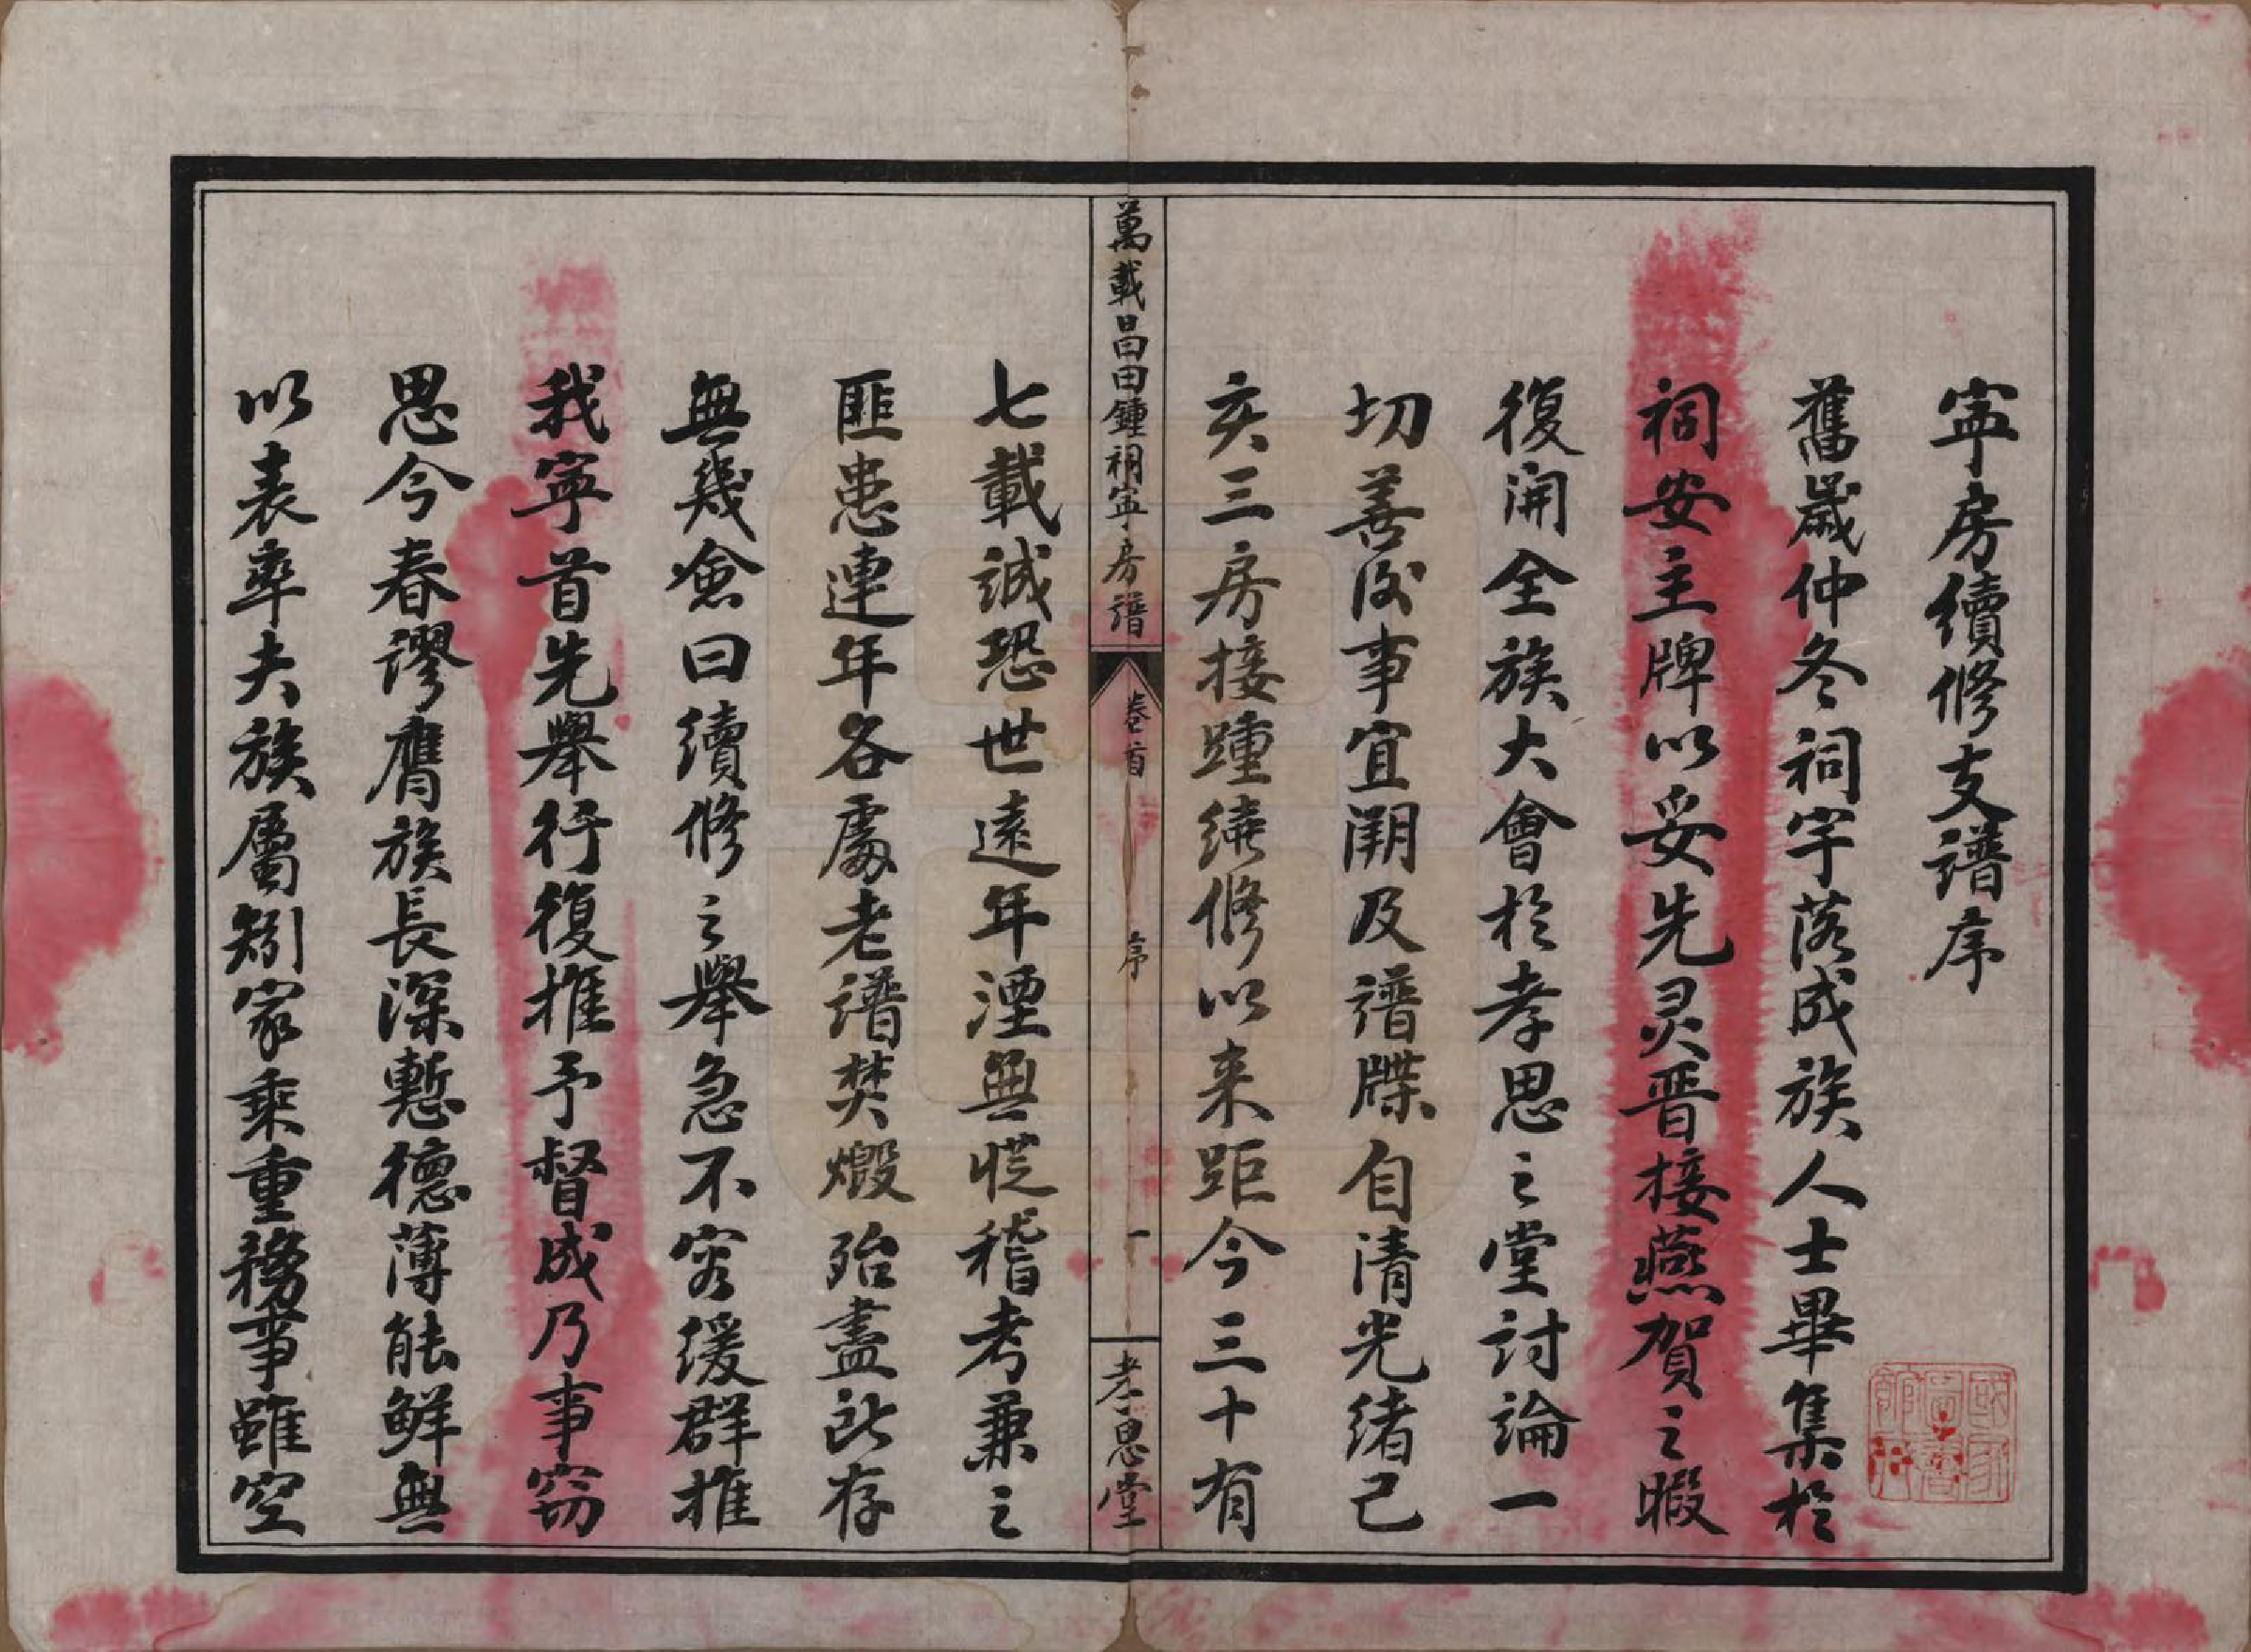 寧房續修支譜序
舊歲仲冬祠宇落成族人士畢集於
祠安主牌以妥先灵晋接燕賀之暇
復開全族大會於孝思之堂討論一
切善後事宜開及譜牒自清光绪己
亥三房接踵續修以来距今三十有
萬載昌田鍾祠寧房譜
卷首
序
一
孝思堂
七載誠恐世遠年湮無從稽考兼之
匪患連年各處老譜焚燬殆盡所存
無幾僉曰續修之舉急不容缓群推
我寧首先舉行復推予督成乃事窃
思今春謬膺族長深慙德薄能鮮無
以表率夫族屬矧家乘重務事雖空
國家圖書館藏